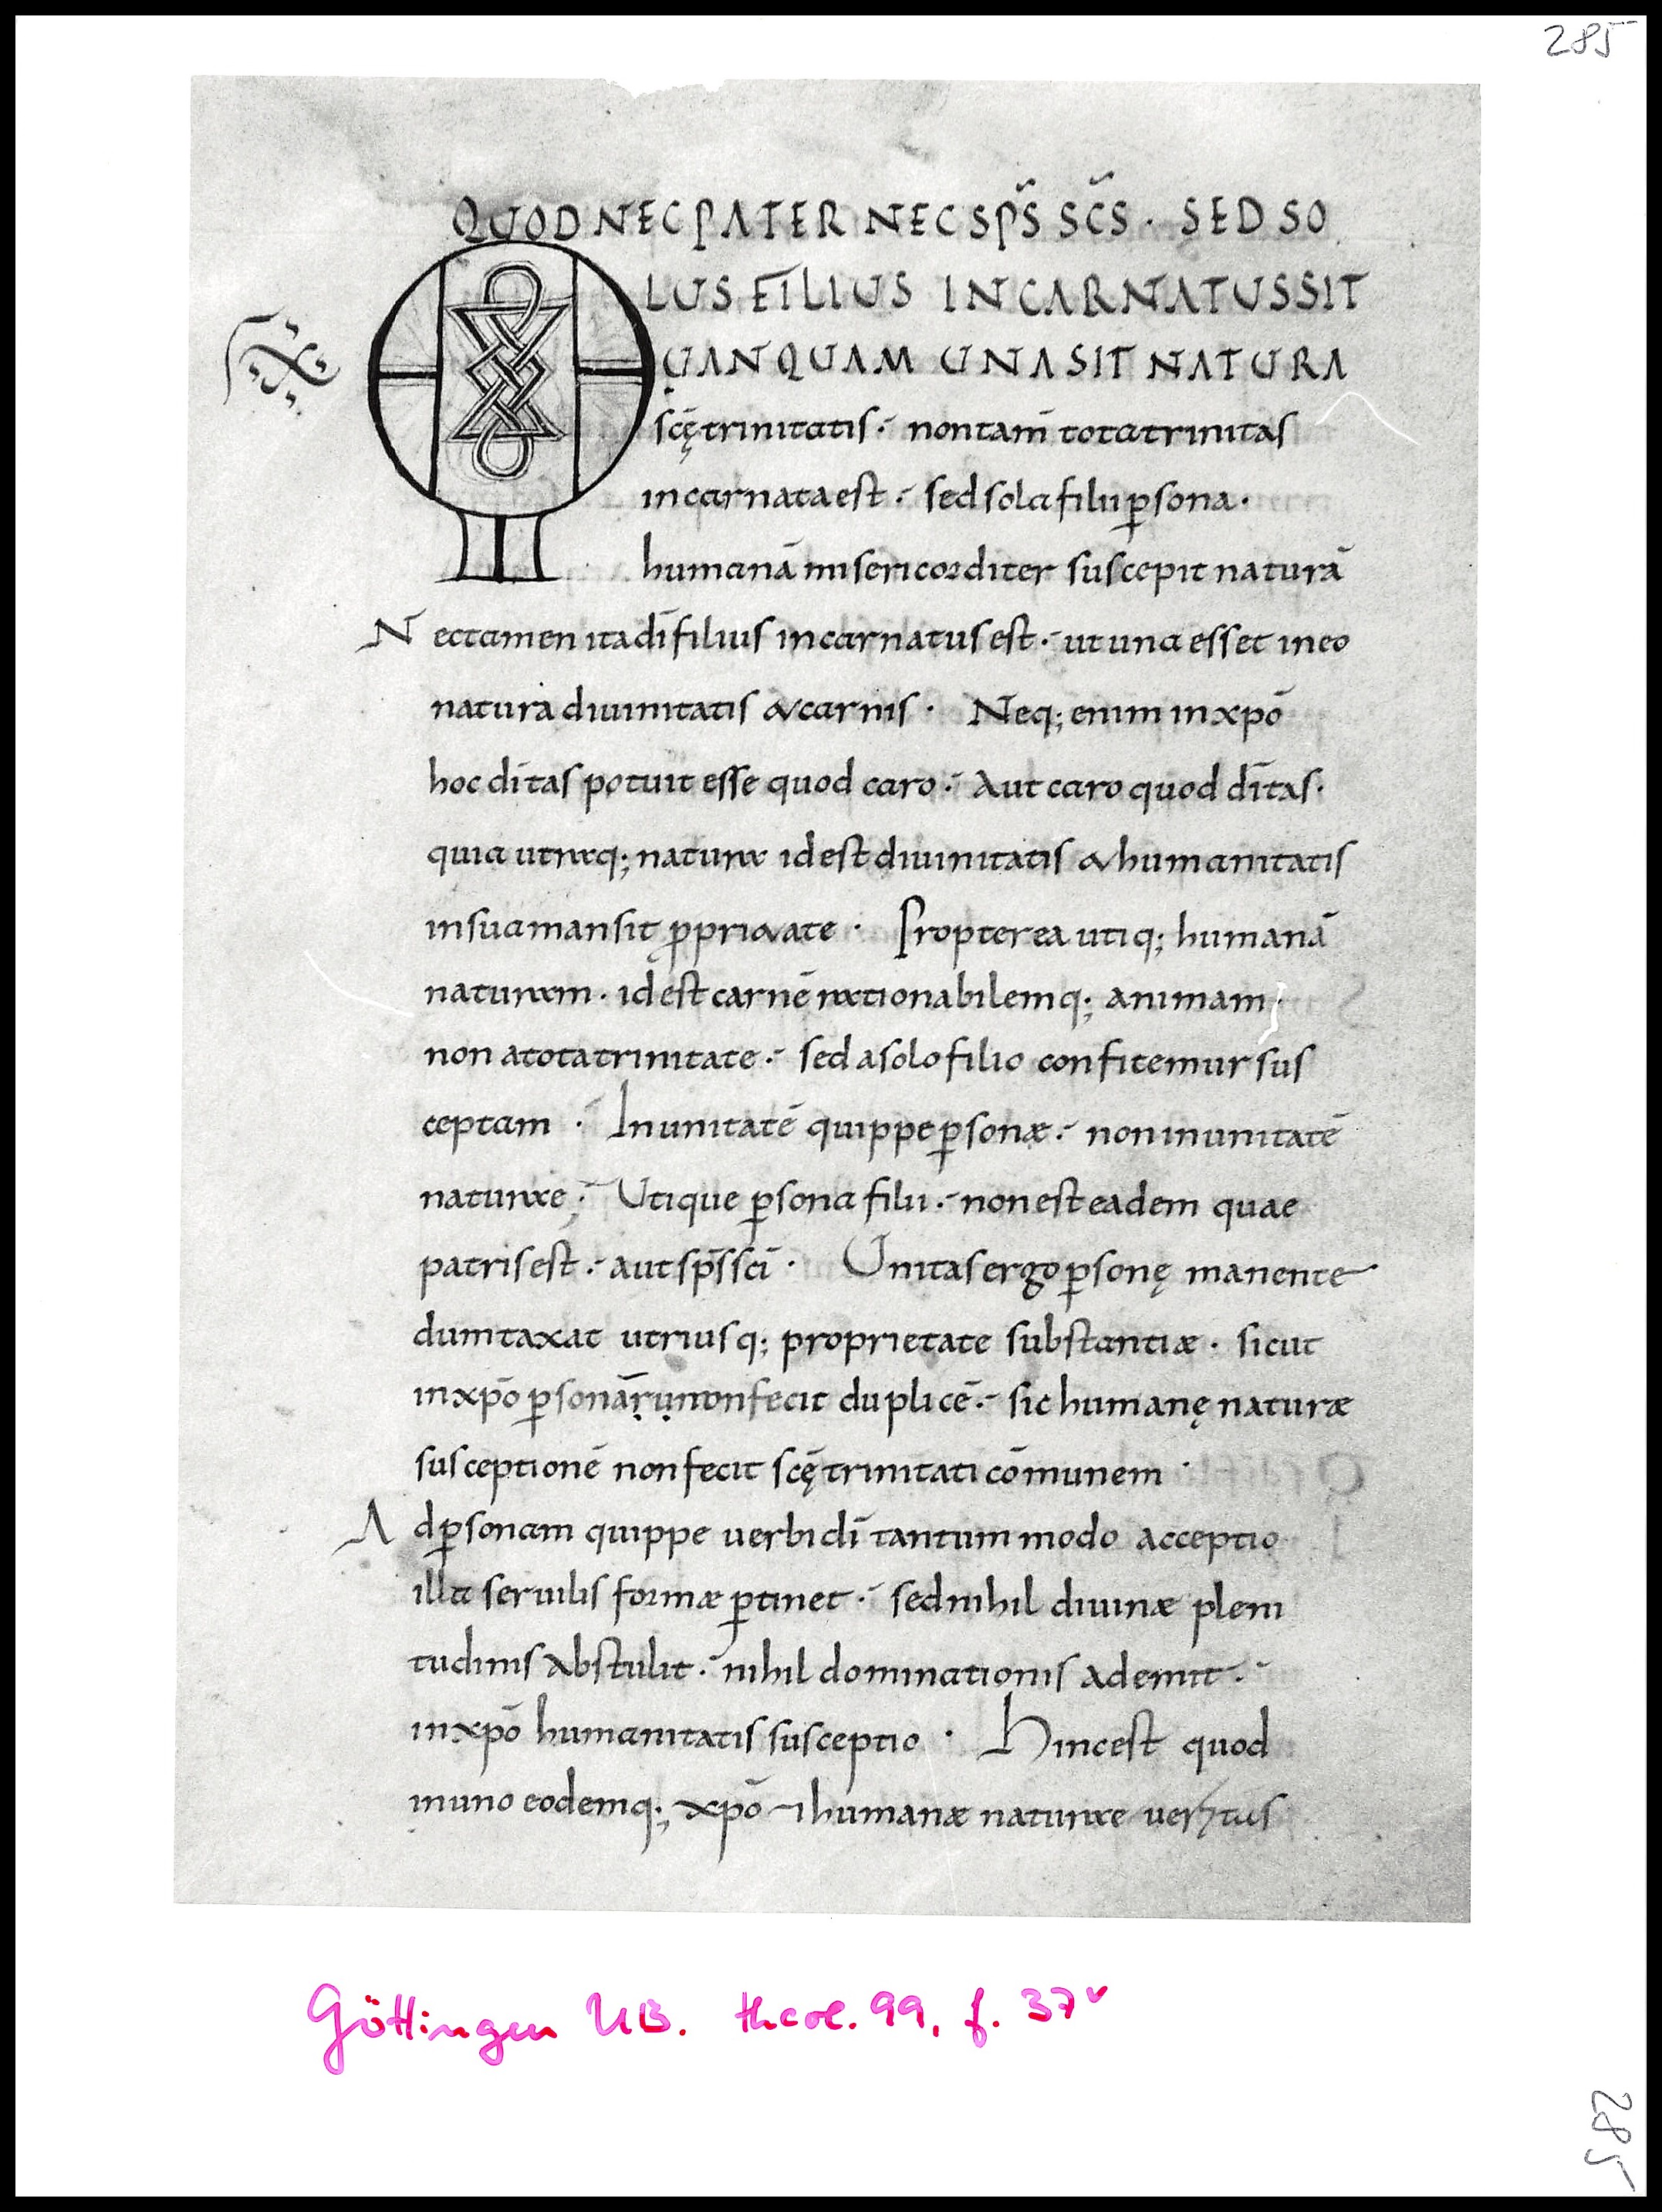 285
QUOD NEC PATER NEC SPS̄ SCS̄ · SED SO
LUS FILIUS INCARNATUS SIT
QUANQUAM UNA SIT NATURA
scę̄ trinitatis · non tam̄ tota trinitas
incarnata est · sed sola filii ꝑsona ·
humanā misericorditer suscepit naturā
Nec tamen ita dī filius incarnatus est · ut una esset in eo
natura diuinitatis & carnis · Neq; enim in xpō
hoc dītas potuit esse quod caro · Aut caro quod dītas ·
quia utraq; natura id est diuinitatis & humanitatis
in sua mansit ꝓpri&ate · Propterea utiq; humanā
naturam · id est carnē rationabilemq; animam ·
non a tota trinitate · sed a solo filio confitemur sus
ceptam · In unitatē quippe ꝑsonæ · non in unitatē
naturae ; Utique ꝑsona filii · non est eadem quae
patris est · aut sps̄ scī · Unitas ergo ꝑsonę manente
dumtaxat utriusq; proprietate substantiæ · sicut
in xpō ꝑsonārụ non fecit duplicē · sic humanę naturæ
susceptionē non fecit scę̄ trinitati cōmunem ·
Ad ꝑsonam quippe uerbi dī tantum modo acceptio
illa seruilis formæ ꝑtinet · sed nihil diuinæ pleni
tudinis abstulit · nihil dominationis ademit ·
in xpō humanitatis susceptio · Hinc est quod
in uno eodemq; xpō humanæ naturae ueritas
Göttingen UB. theol. 99, f. 37v
285